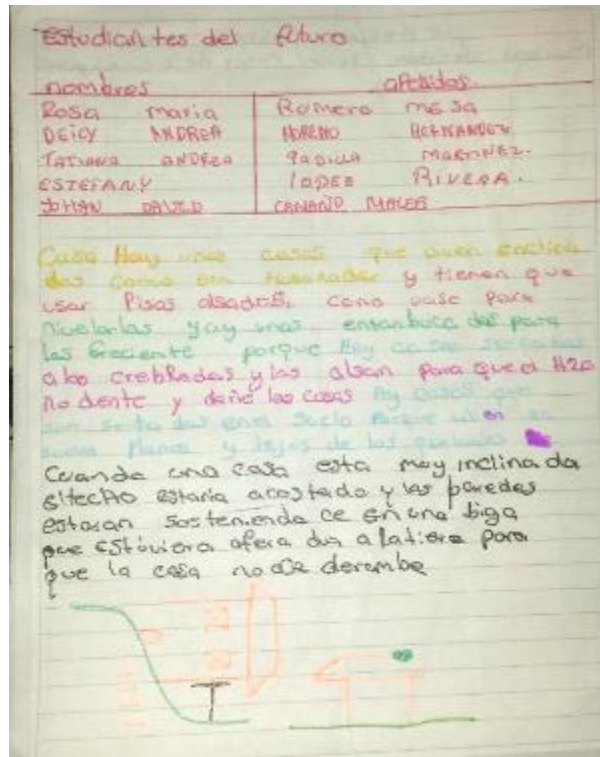 Estudiantes del futuro
nombres apellidos
Rosa maria Romero mesa
DEICY ANDREA MORENO HERNANDEZ
TATIANA ANDREA PADILLA MARTINEZ.
ESTEFANY LOPEZ RIVERA.
JOHAN DAVID
Casa Hay unas casas que viven enclina
das como en y tienen que
usar Pisos alsados, como vase para
nivelarlas y ay unas para
las creciente porque Hay casas
a las crebradas y las alsan para que el H2O
no dentre y dañe las casas Ay casas que
son en el Suelo Porque viven en
Planos y lejos de las
Cuando una casa esta muy inclinada
el techo estaria acostado y las paredes
estarian sosteniendo ce en una biga
que estuviera a la tiera para
que la casa no se derumbe